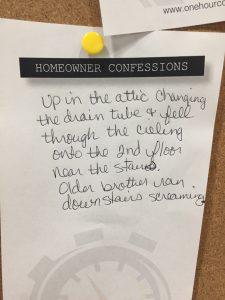 www.onehourco
HOMEOWNER CONFESSIONS
Up in the attic changing
the drain tube & fell
through the ceiling
onto the 2nd floor
near the stairs.
Older brother ran
downstairs screaming.